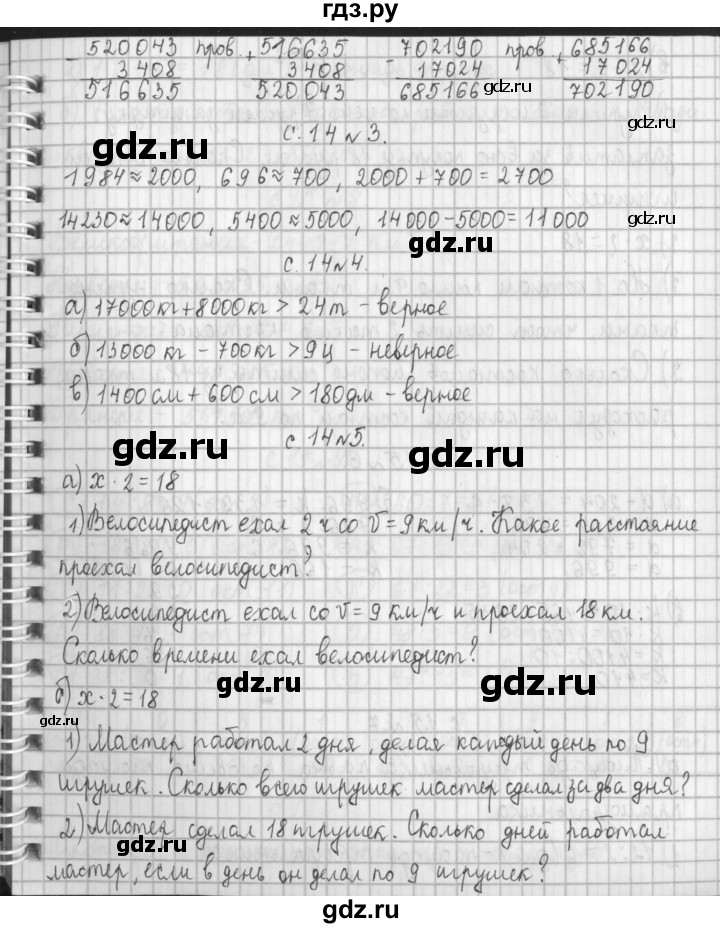 гдз.ру
520043 пров. 516635 702190 пров. 685166
- 3408 + 3408 - 17024 + 17024
516635 520043 685166 702190
gdz.ru
с. 14 № 3.
gdz.ru
gdz.ru
1984≈2000, 696≈700, 2000+700=2700
14230≈14000, 5400≈5000, 14000-5000=11000
gdz.ru
gdz.ru
с. 14 № 4.
а) 17000кг+8000кг > 24т - верное
б) 13000 кг - 700кг > 9ц - неверное
в) 1400см + 600см > 180дм - верное
gdz.ru
gdz.ru
с 14 № 5.
а) x · 2 = 18
1) Велосипедист ехал 2 ч со V = 9км/ч. Какое расстаяние
проехал велосипедист?
gdz.ru
gdz.ru
2) Велосипедист ехал со V = 9 км/ч и проехал 18 км.
Сколько времени ехал велосипедист?
gdz.ru
gdz.ru
б) x · 2 = 18
gdz.ru
1) Мастер работал 2 дня, делая каждый день по 9
игрушек. Сколько всего игрушек мастер сделал за два дня?
2) Мастер сделал 18 игрушек. Сколько дней работал
gdz.ru
gdz.ru
мастер, если в день он делал по 9 игрушек?
gdz.ru